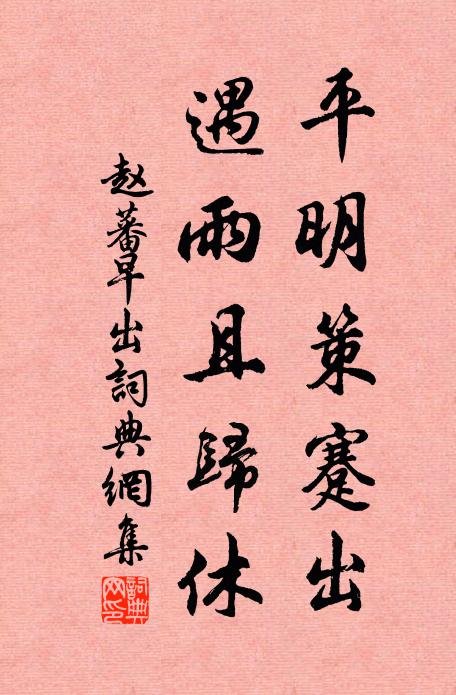 平明策蹇出
遇雨且歸休
赵蕃早出詞典網集
詞典网印